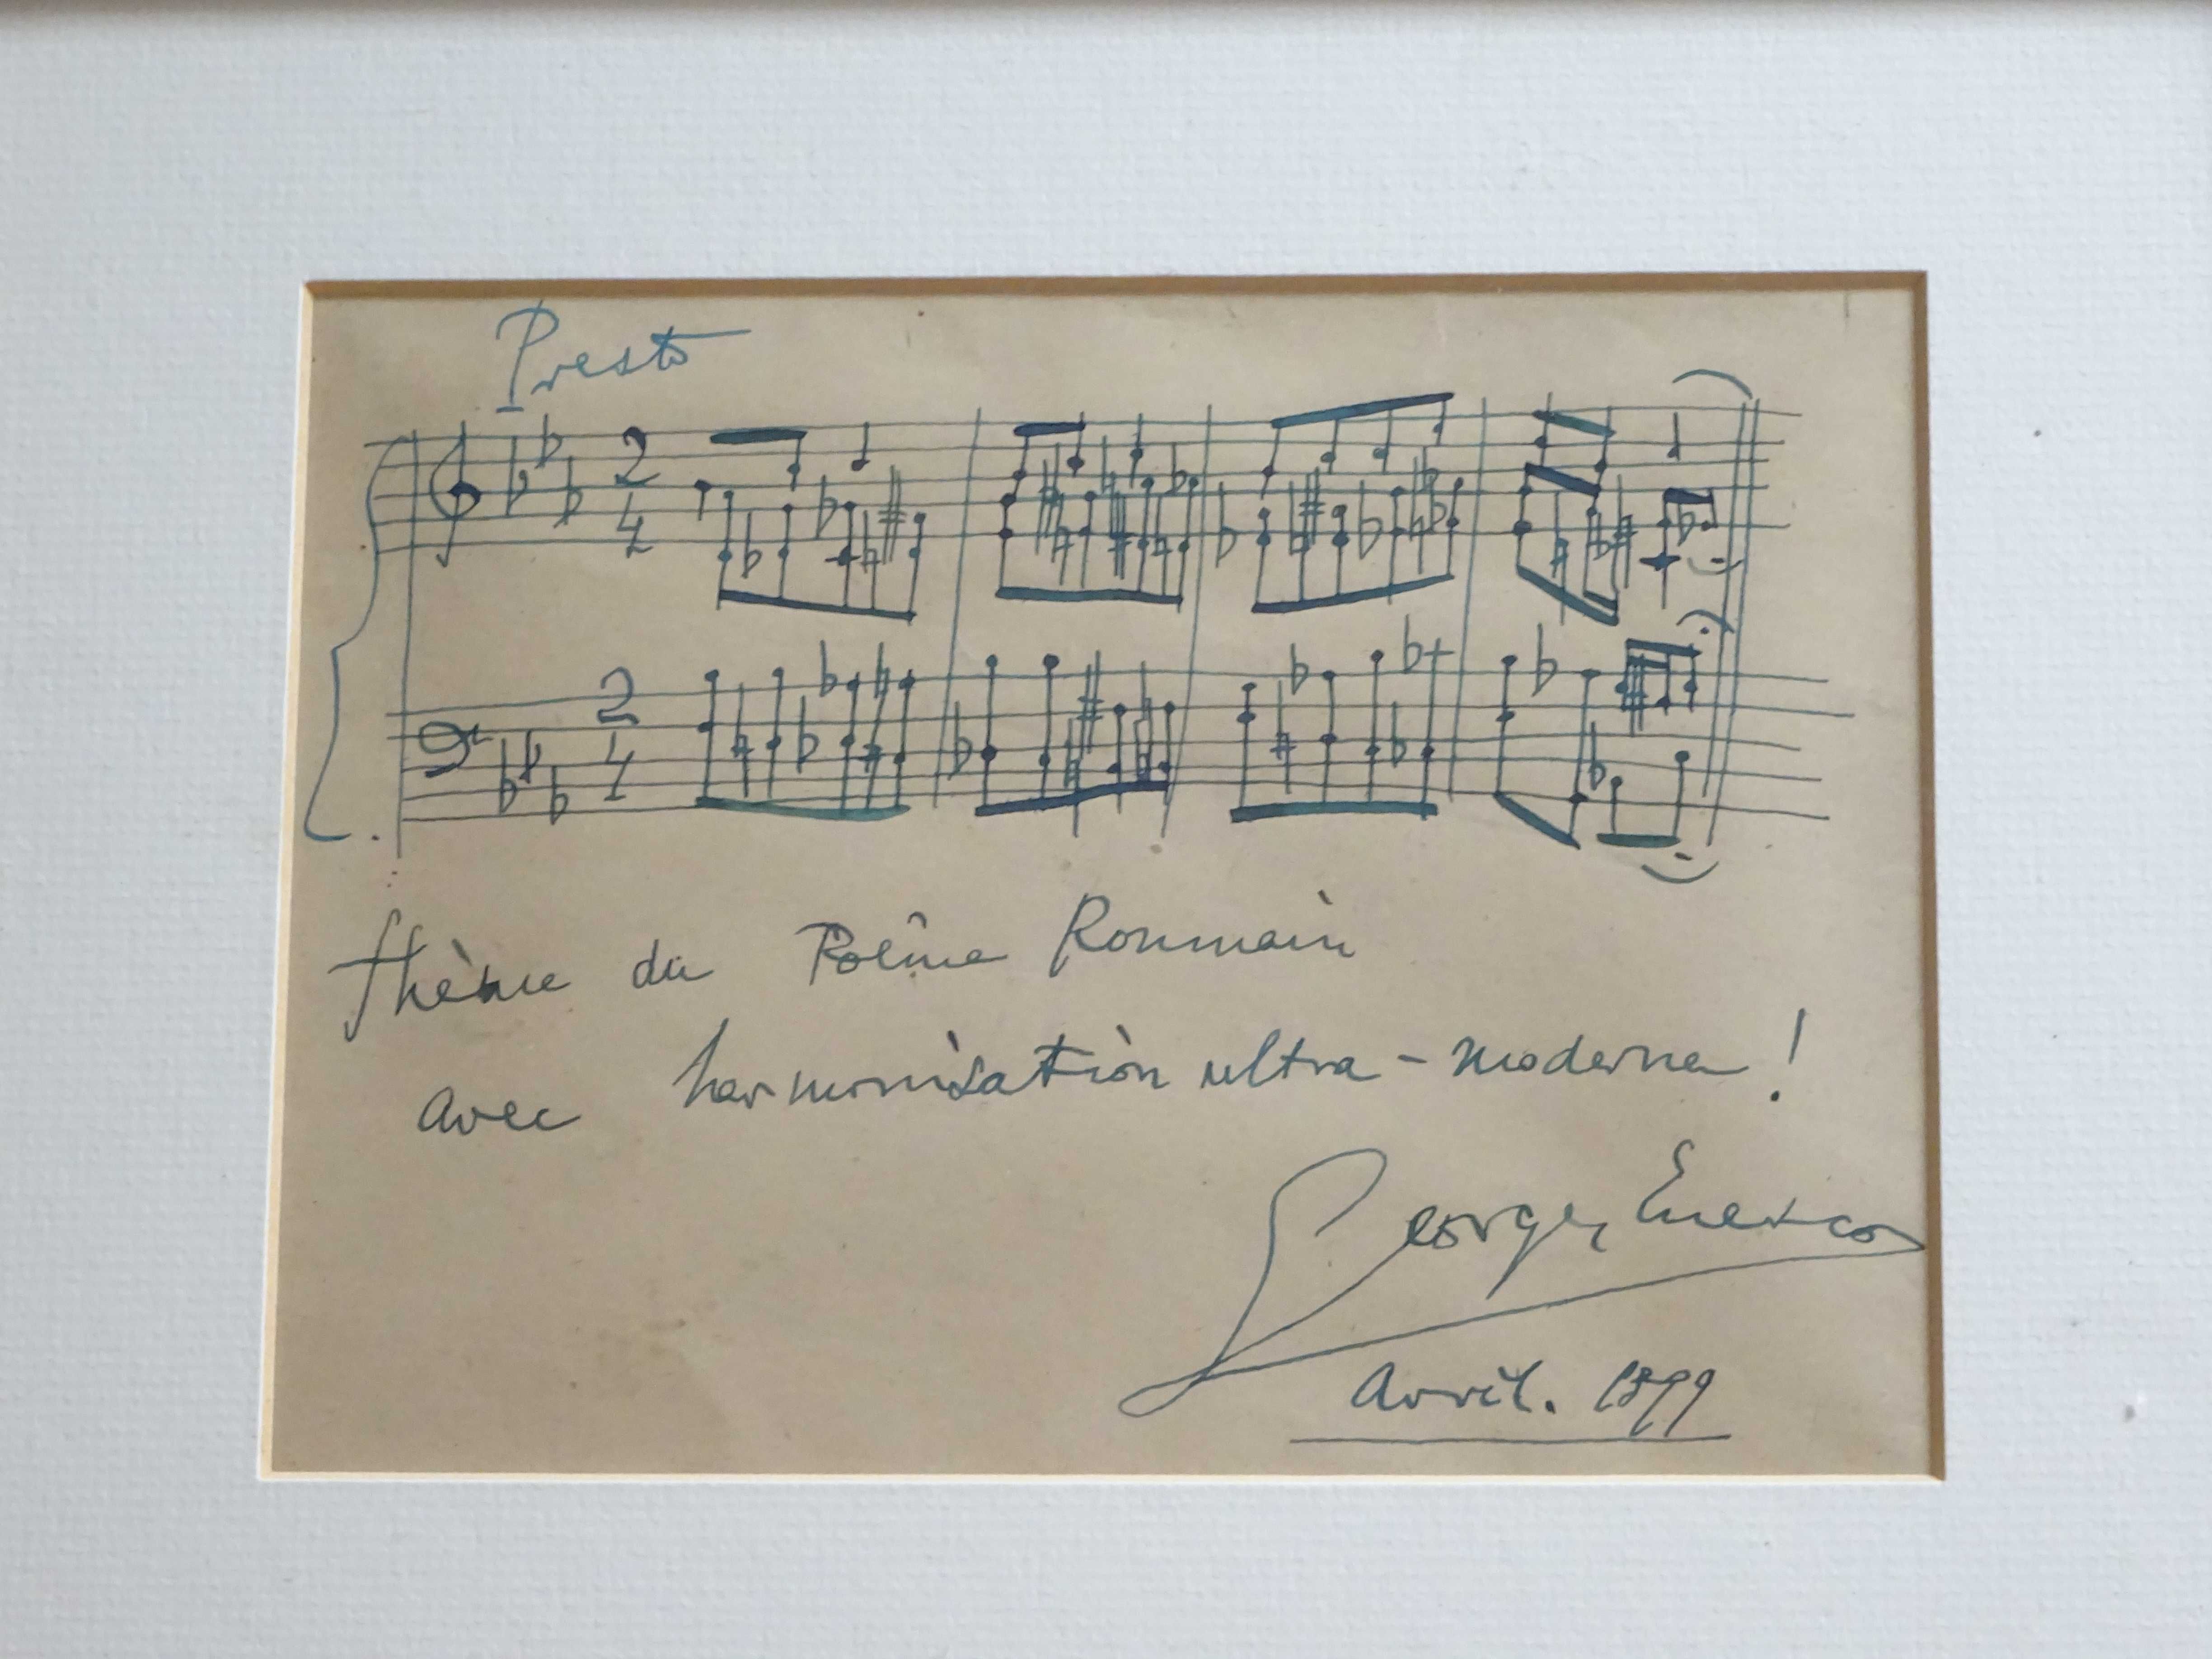 Presto
2
4
2
4
thème du Poême Roumain
avec harmonisation ultra-moderne!
Georges Enesco
Avril. 1899